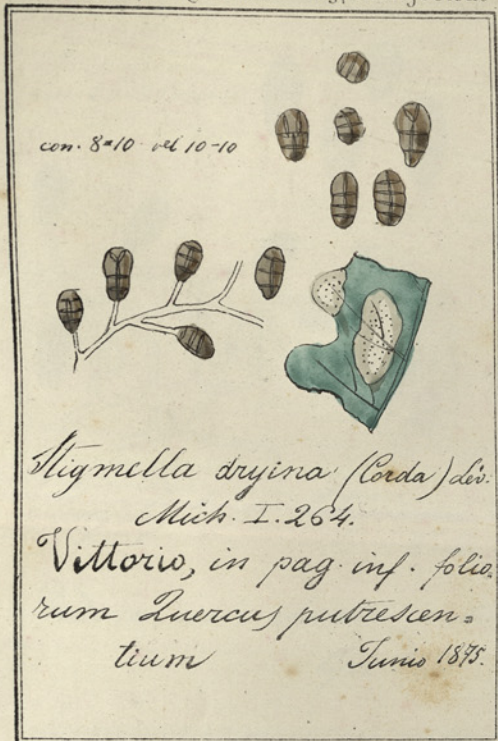 con. 8=10 vel 10-10
Stigmella dryina (Corda) Lév.
Mich. I. 264.
Vittorio, in pag. inf. folio-
rum Quercus putrescen=
tium Junio 1875.